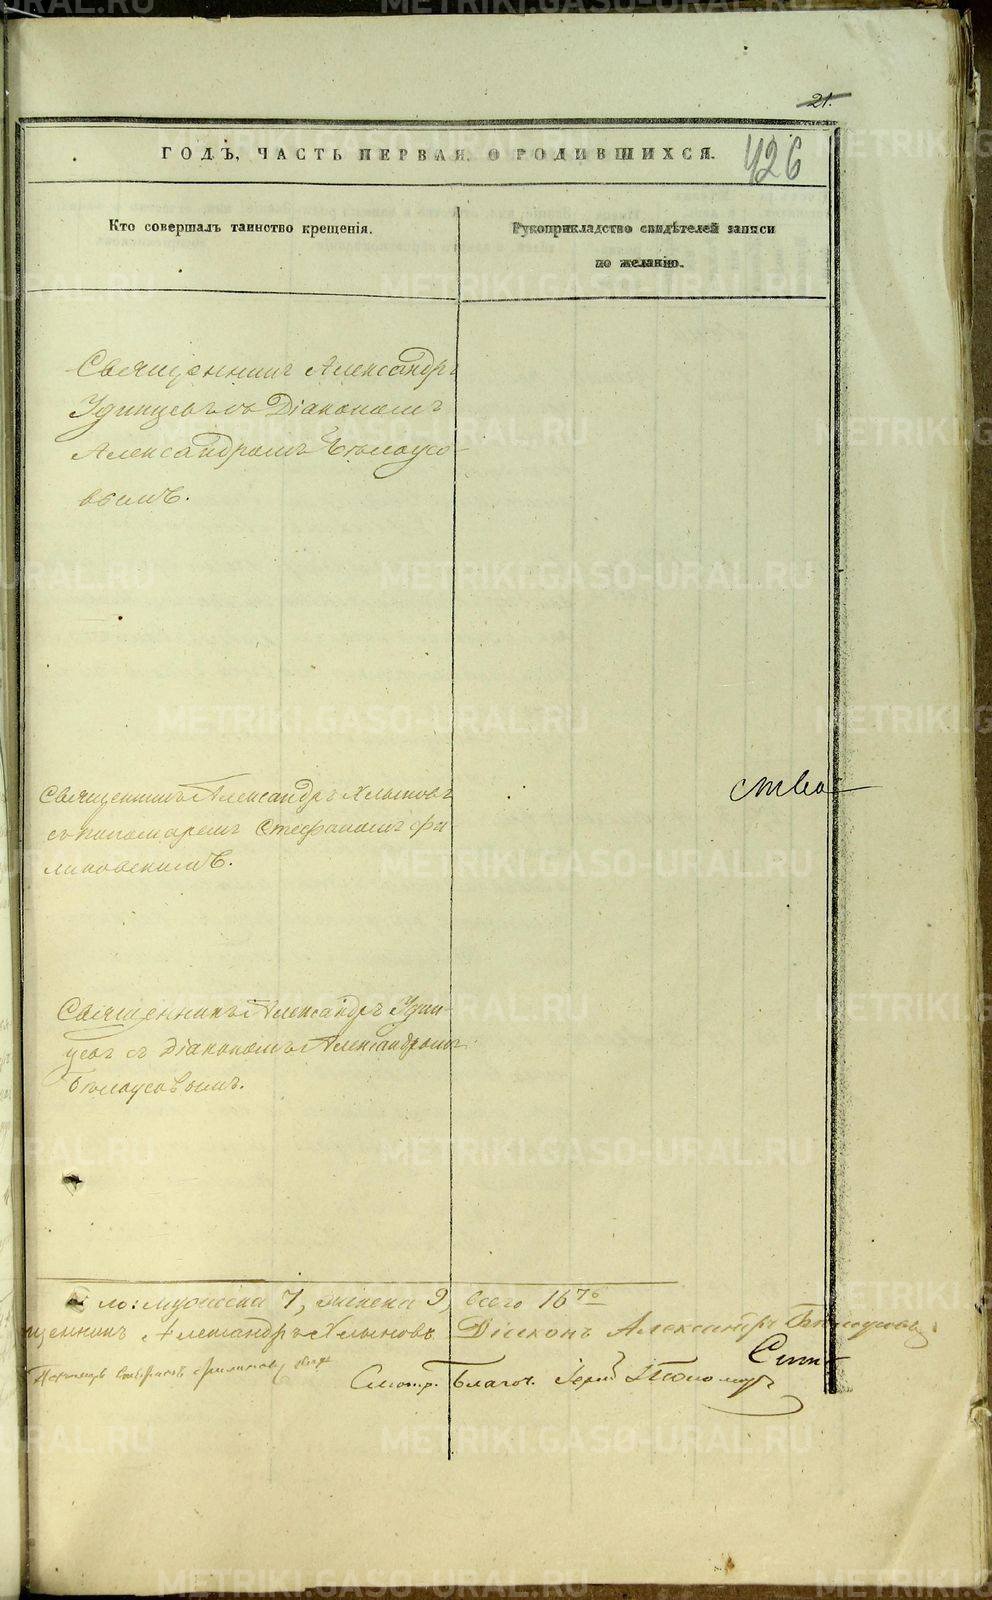 21.
ГОДЪ, ЧАСТЬ ПЕРВАЯ, О РОДИВШИХСЯ.
426
Кто совершалъ таинство крещенія.
Рукоприкладство свидѣтелей записи
по желанію.
Священникъ Александръ
Удинцевъ съ Діакономъ
Александромъ Бѣлоусо-
вымъ.
Священникъ Александръ Хлыновъ
съ пономаремъ Стефаномъ Фи
линовскимъ.
ства
Священникъ Александръ Удин-
цевъ съ Діакономъ Александромъ
Бѣлоусовымъ.
ло: мужеска 7, женска 9, всего 16
щенникъ Александръ Хлыновъ Діаконъ Александръ Бѣлоусовъ
Пономарь Стефанъ
Смотр. Благоч. Іерей
METRIKI.GASO-URAL.RU